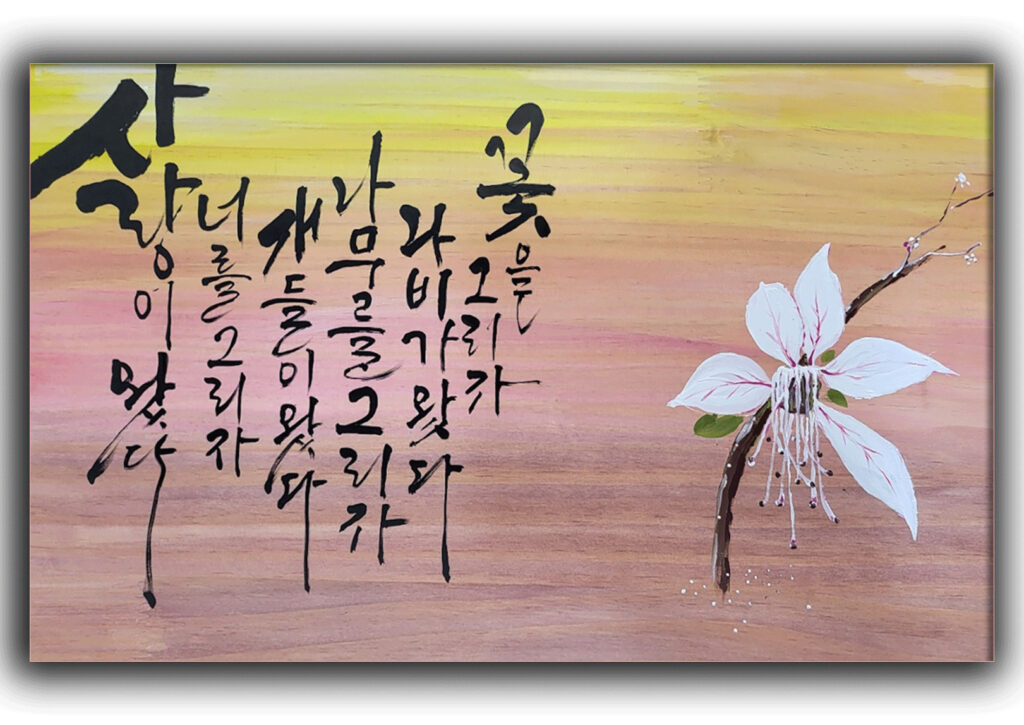 꽃을 그리자
나비가 왔다
나무를 그리자
새들이 왔다
너를 그리자
사랑이 왔다